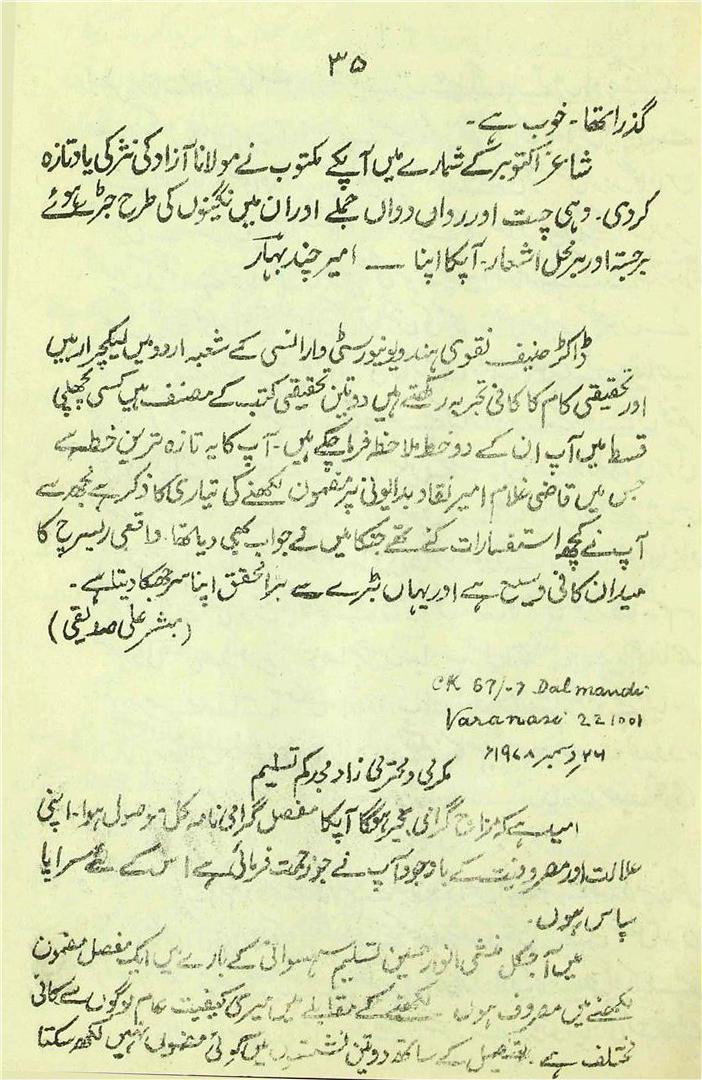 ۳۵
گذرا تھا۔ خوب ہے۔
شاعر اکتوبر کے شمارے میں آپکے مکتوب نے مولانا آزاد کی نثر کی یاد تازہ
کردی۔ وہی چست اور رواں دواں جملے اور ان میں نگینوں کی طرح جڑے ہوئے
برجستہ اور برمحل اشعار۔ آپکا اپنا — امیر چند بہار
ڈاکٹر حنیف نقوی ہندو یونیورسٹی وارانسی کے شعبہ اردو میں لیکچرار ہیں
اور تحقیقی کام کا کافی تجربہ رکھتے ہیں دو تین تحقیقی کتب کے مصنف ہیں کسی پچھلی
قسط میں آپ ان کے دو خط ملاحظہ فرما چکے ہیں۔ آپ کا یہ تازہ ترین خط ہے
جس میں قاضی غلام امیر نقاد بدایونی پر مضمون لکھنے کی تیاری کا ذکر ہے مجھ سے
آپ نے کچھ استفسارات کئے تھے جنکا میں نے جواب بھی دیا تھا۔ واقعی ریسرچ کا
میدان کافی وسیع ہے اور یہاں بڑے سے بڑا محقق اپنا سر جھکا دیتا ہے۔
(مبشر علی صدیقی)
CK 67/-7 Dalmandi
Varanasi 221001
۲۶ دسمبر ۱۹۷۸ء
مکرمی و محترمی زاد مجدکم تسلیم
امید ہے کہ مزاج گرامی بخیر ہوگا آپکا مفصل گرامی نامہ کل موصول ہوا۔ اپنی
علالت اور مصروفیت کے باوجود آپ نے جو زحمت فرمائی ہے اس کے لئے سراپا
سپاس ہوں۔
میں آجکل منشی انوار حسین تسلیم سہسوانی کے بارے میں ایک مفصل مضمون
لکھنے میں مصروف ہوں لکھنے کے مقابلے میں میری کیفیت عام لوگوں سے کافی
مختلف ہے۔ تفصیل کے ساتھ دو تین نشستوں میں کوئی مضمون نہیں لکھ سکتا